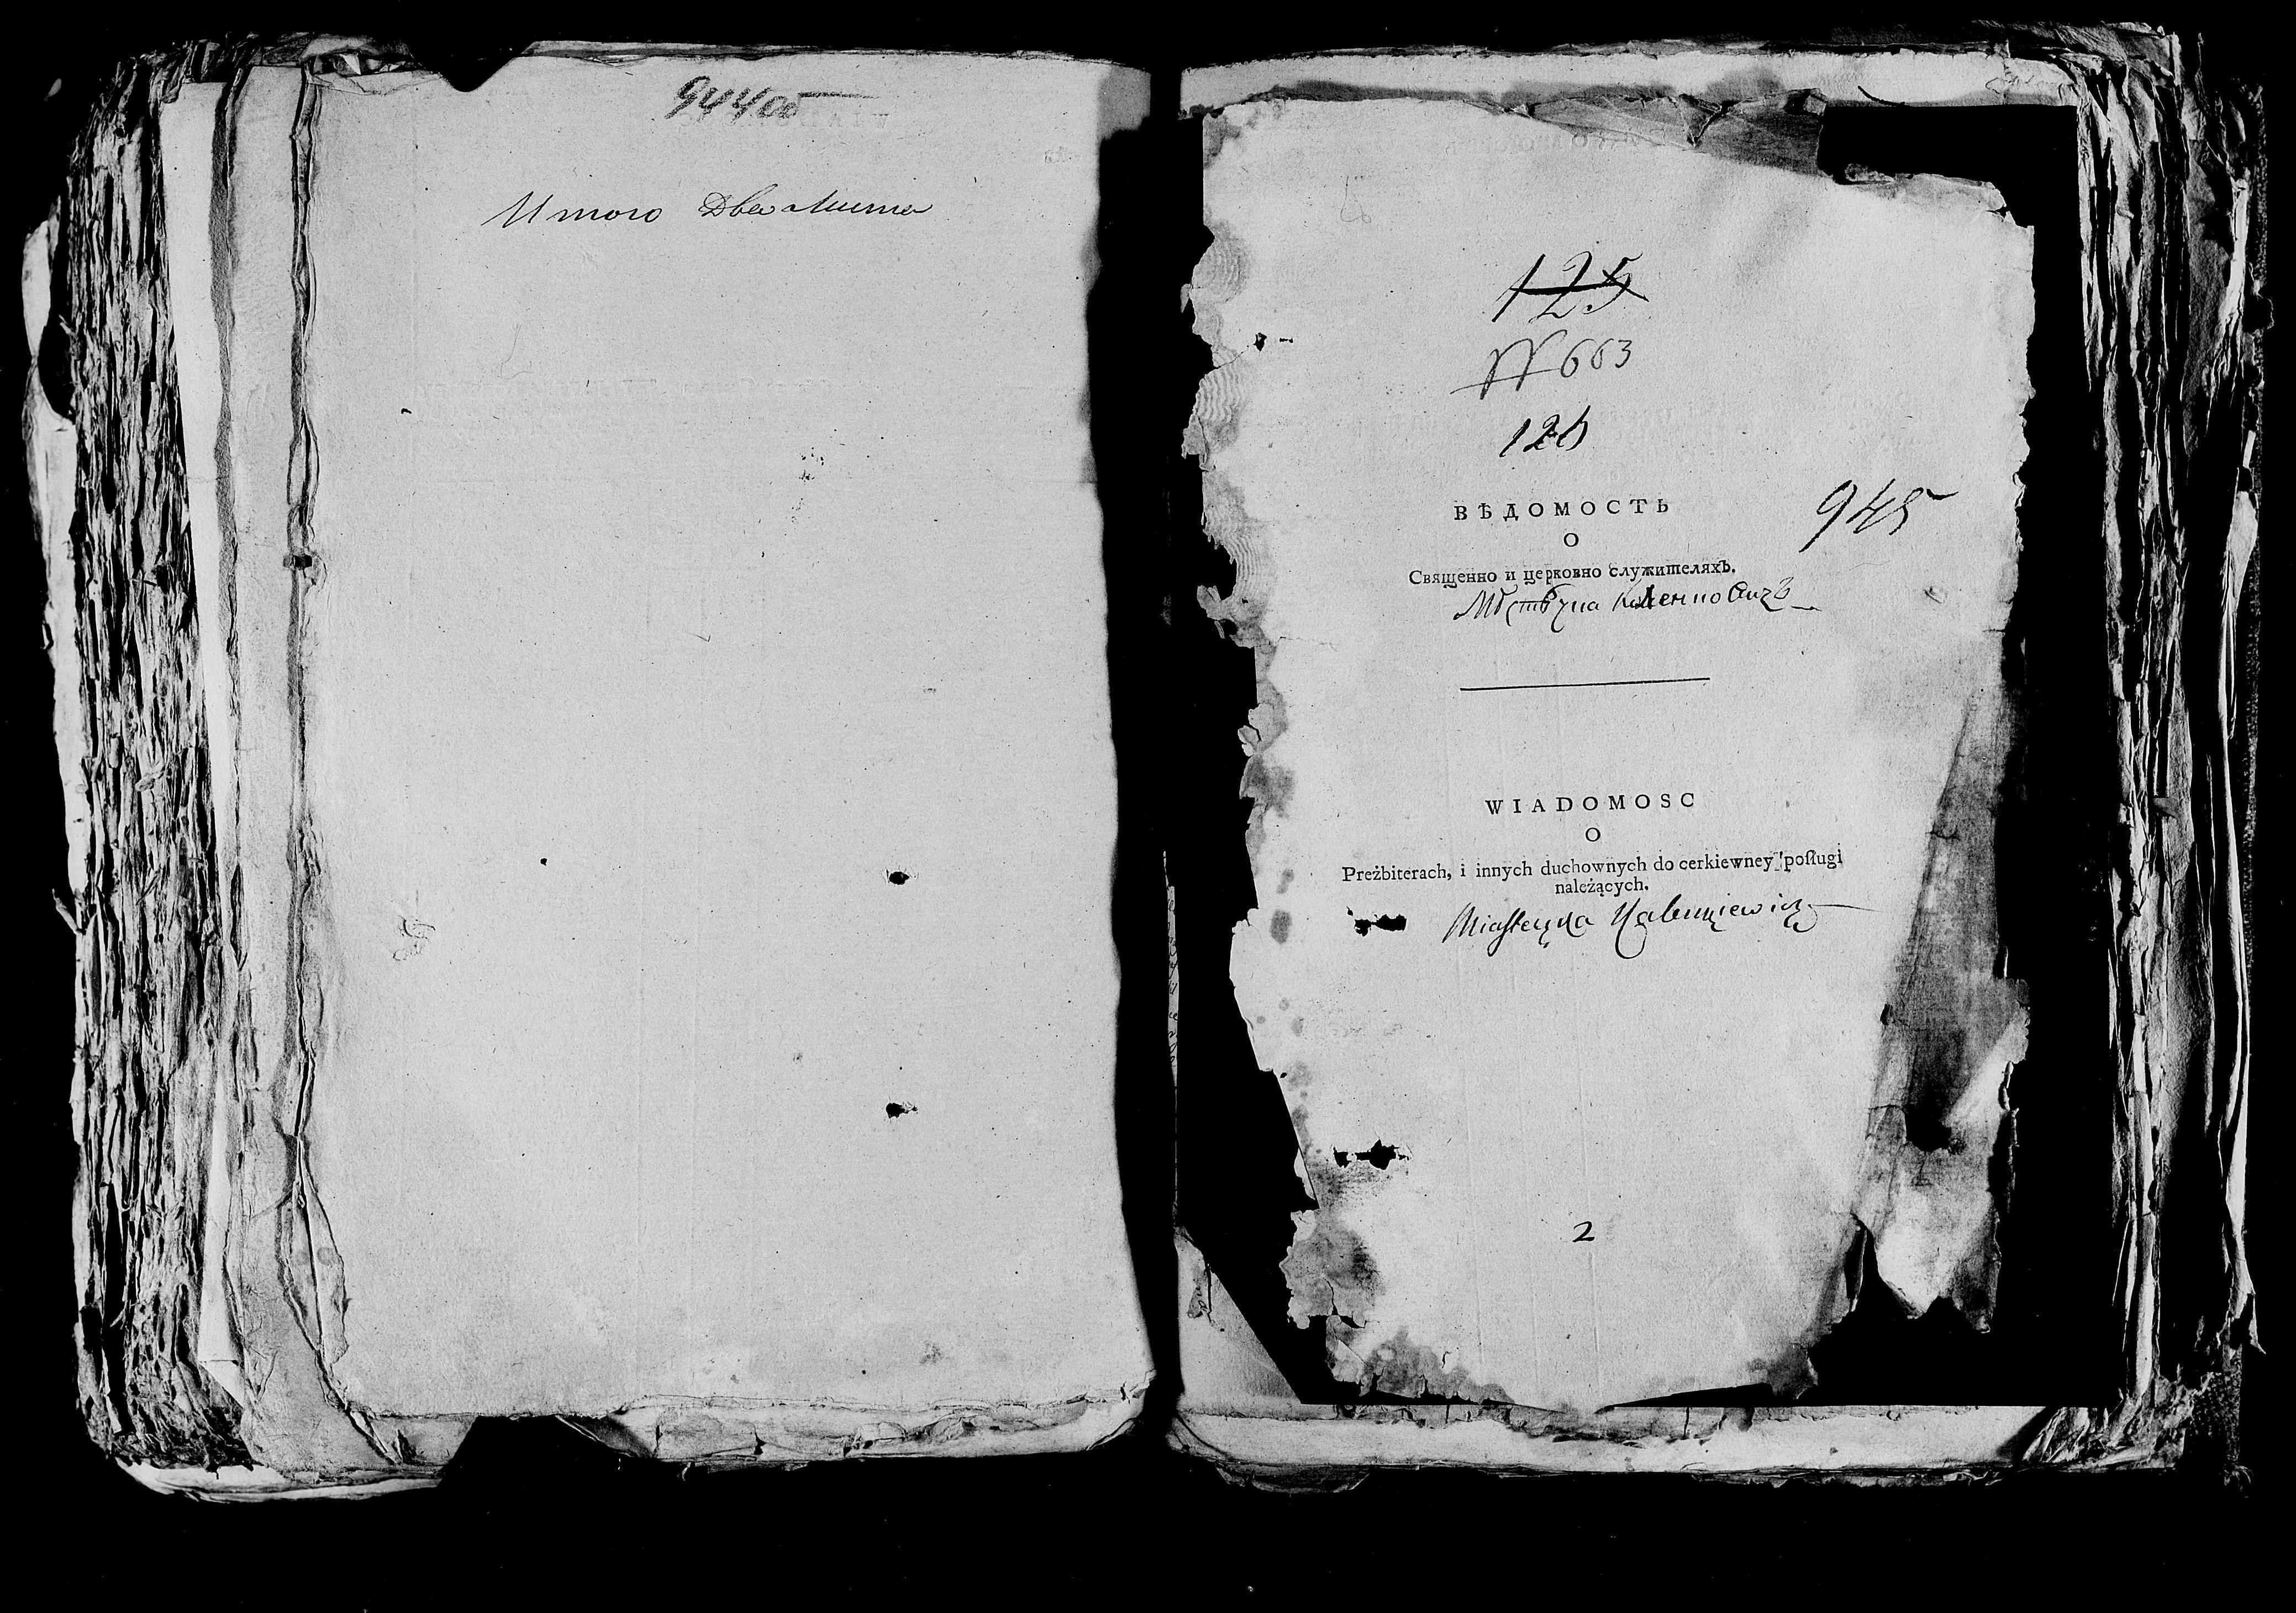 944 об
Итого Два листа
125
№ 663
126
ВѢДОМОСТЬ
О
945
Священно и церковно служителяхъ.
Мѣстечка
WIADOMOSC
O
Preżbiterach, i innych duchownych do cerkiewney posługi
należących.
Miasteczka
2